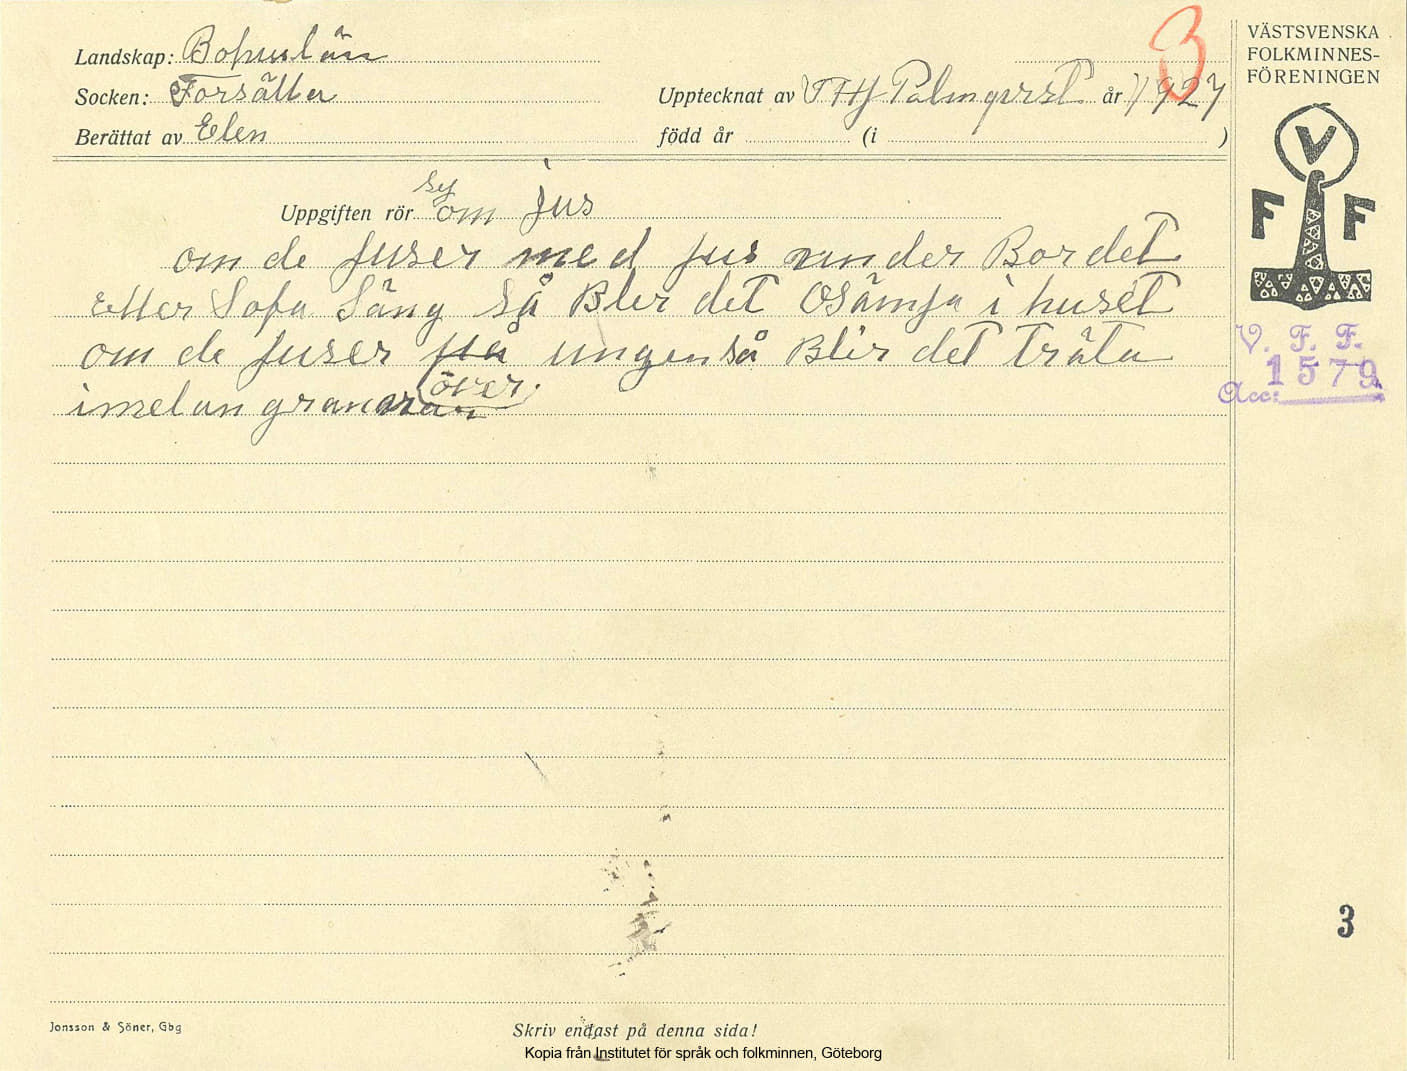 Landskap: Bohuslän
Socken: Forsätter
Berättat av Elen
3
Upptecknat av T Hj Palmqvist år 1927
född år (i )
VÄSTSVENSKA
FOLKMINNES-
FÖRENINGEN
V
F F
Uppgiften rör om jus
om de juser med jus under Bordet
Etter Sofa Säng så Bler det Osämja i huset
om de juser på ungen så Blir det träta
över
imelan granarna
V. F. F.
1579
Acc:
3
Jonsson & Söner, Gbg
Skriv endast på denna sida!
Kopia från Institutet för språk och folkminnen, Göteborg